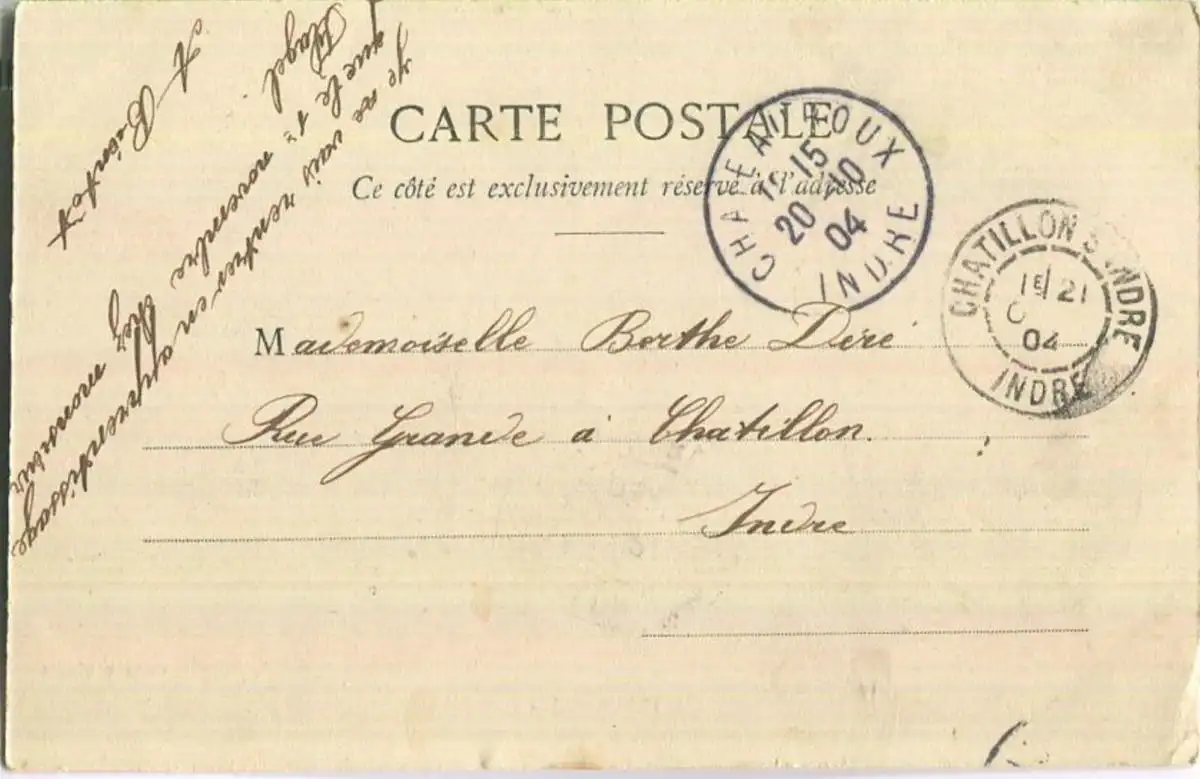 CARTE POSTALE
Ce côté est exclusivement réservé à l'adresse
Mademoiselle Berthe Déré
Rue Grande à Chatillon.
Indre
CHATEAUROUX
15
20 10
04
INDRE
CHATILLON S INDRE
1E 21
04
INDRE
Je ne vais rentrer en apprentissage
que le 1er novembre chez monsieur
A Bientot